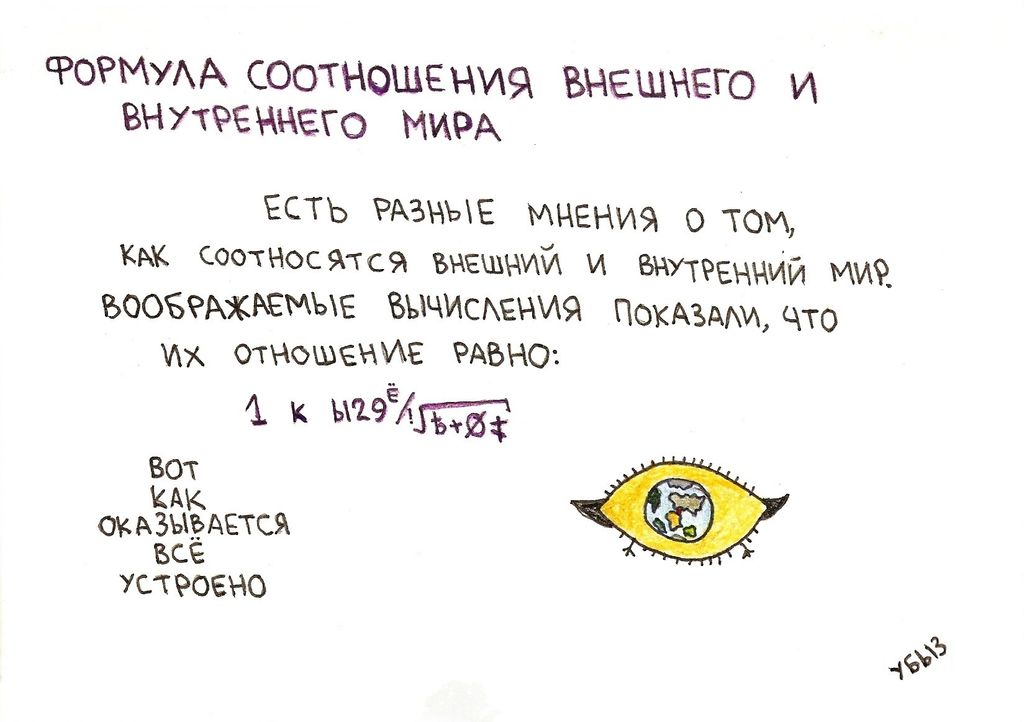 ФОРМУЛА СООТНОШЕНИЯ ВНЕШНЕГО И
ВНУТРЕННЕГО МИРА
ЕСТЬ РАЗНЫЕ МНЕНИЯ О ТОМ,
КАК СООТНОСЯТСЯ ВНЕШНИЙ И ВНУТРЕННИЙ МИР.
ВООБРАЖАЕМЫЕ ВЫЧИСЛЕНИЯ ПОКАЗАЛИ, ЧТО
ИХ ОТНОШЕНИЕ РАВНО:
1 К Ы29^Ё/!√Ѣ+Ø‡
ВОТ
КАК
ОКАЗЫВАЕТСЯ
ВСЁ
УСТРОЕНО
УБЫ3